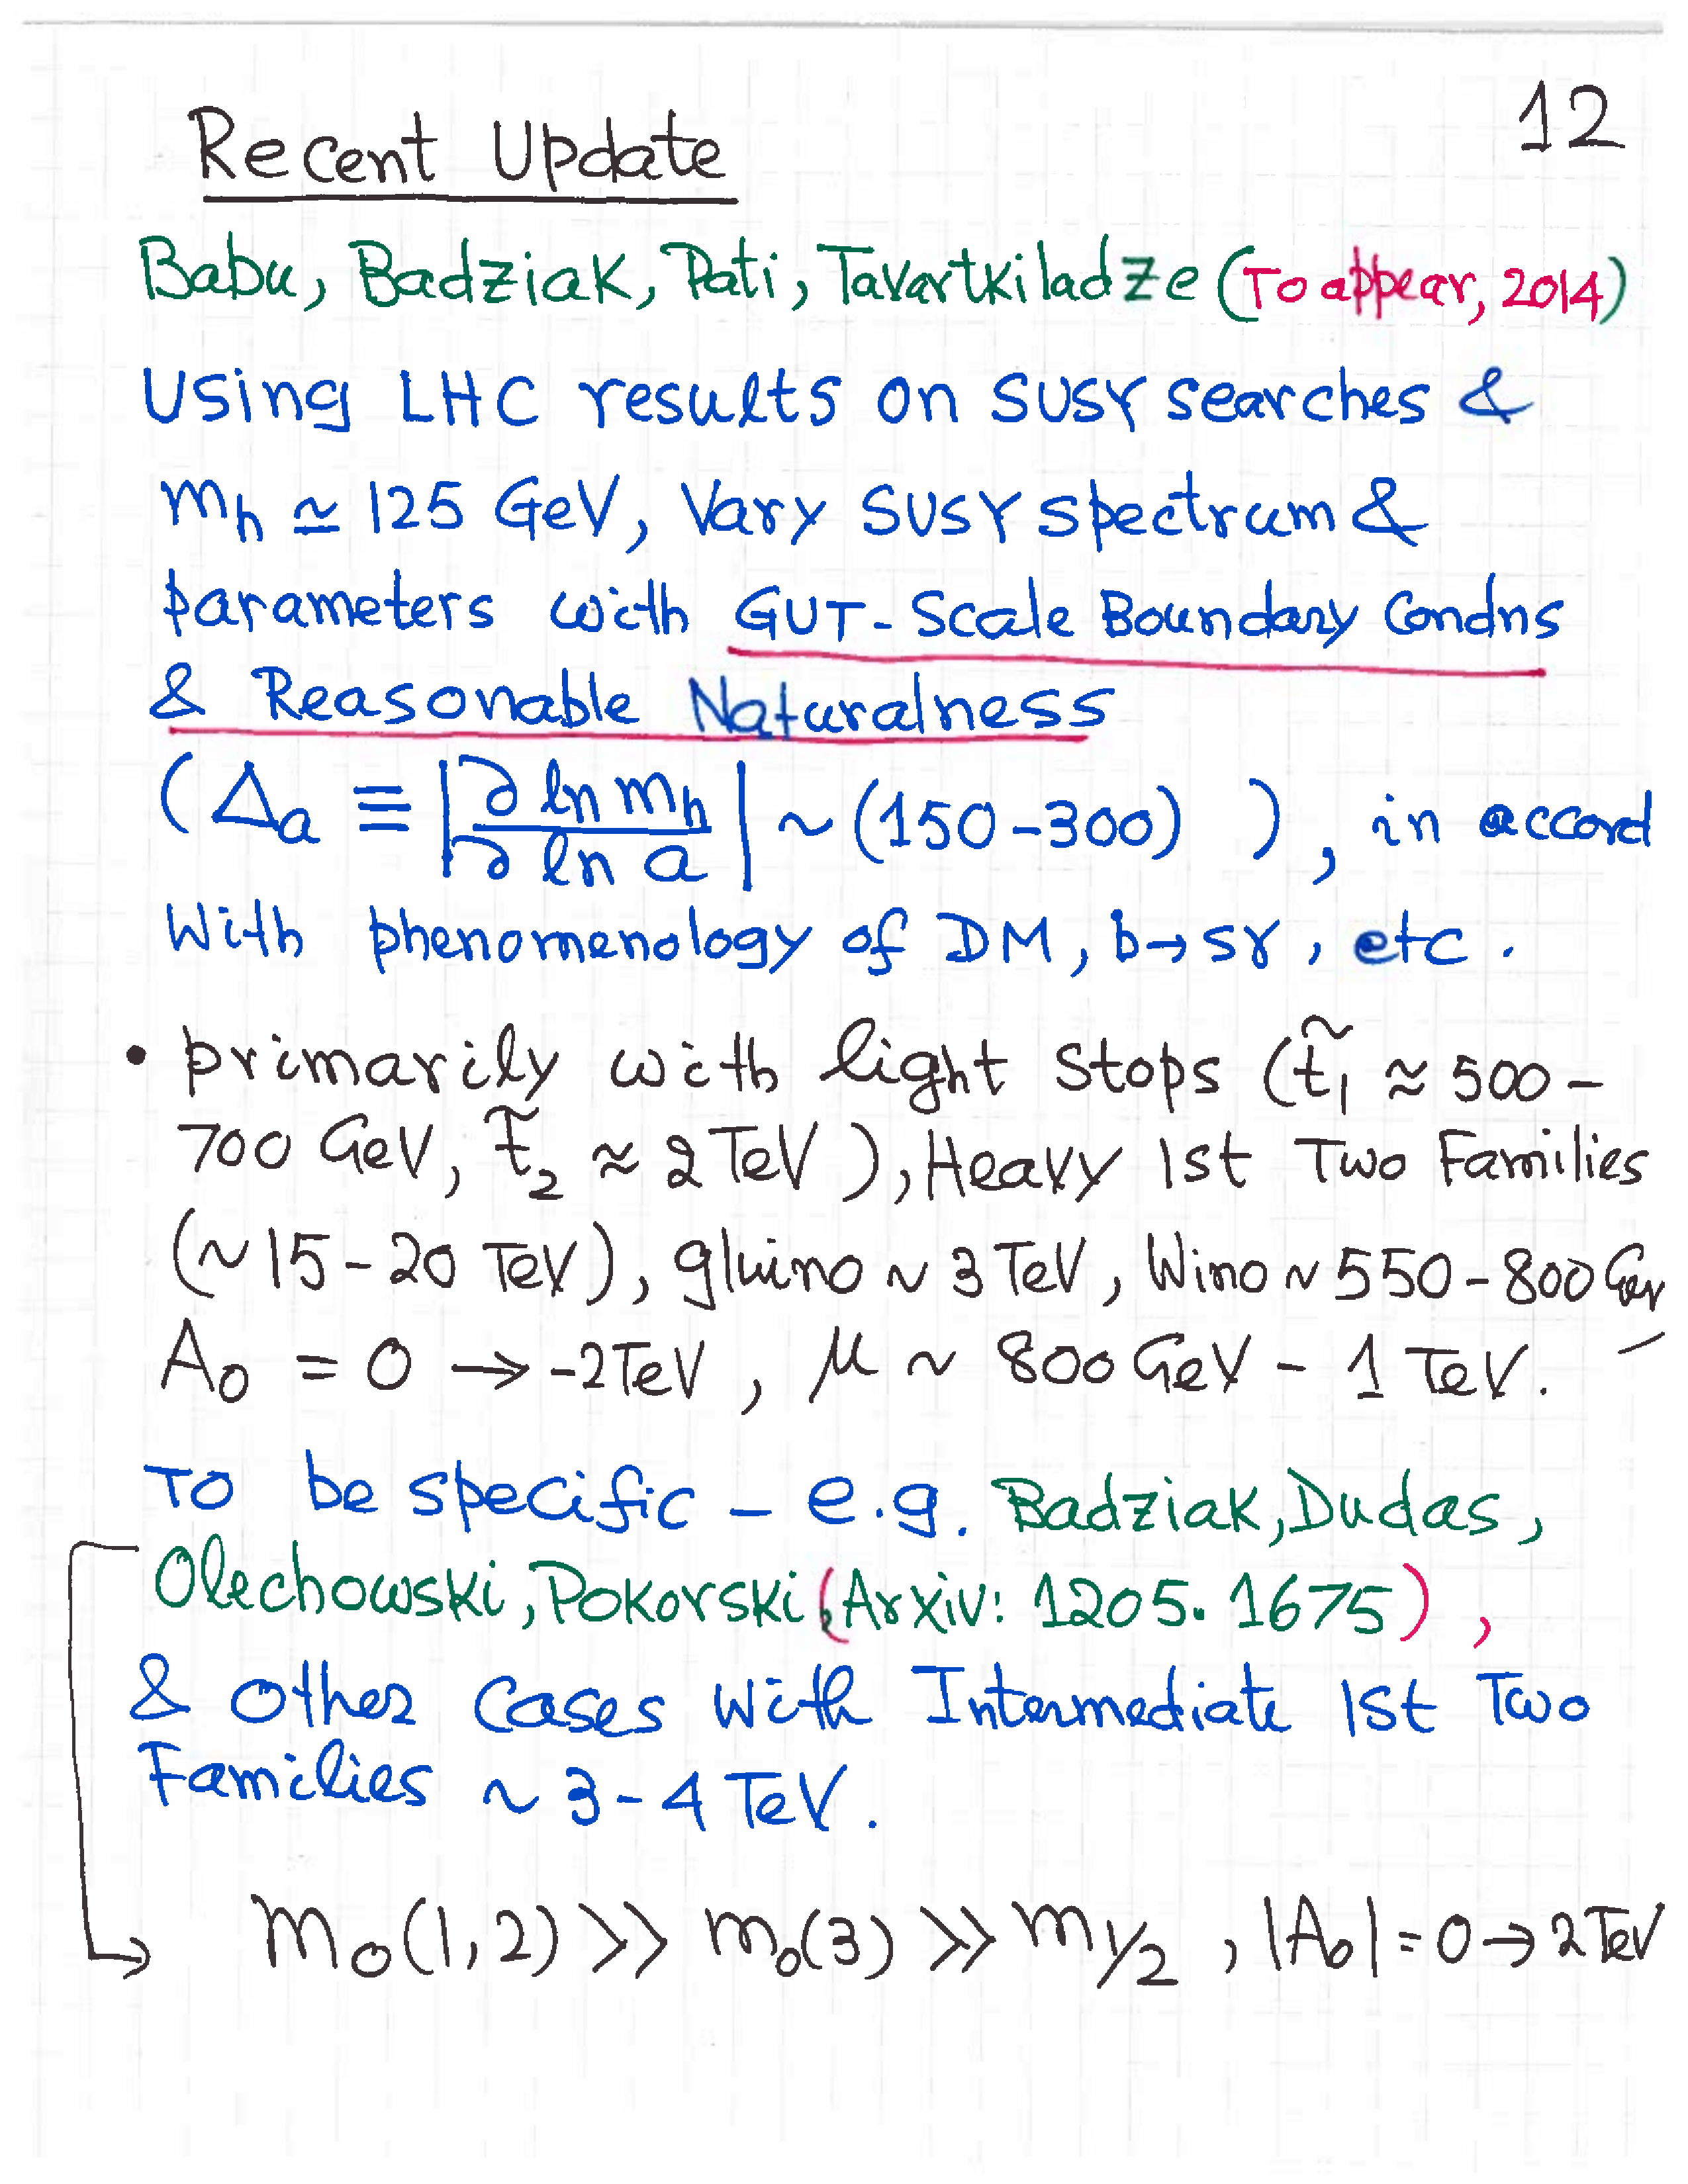 12
Recent Update
Babu, Badziak, Pati, Tavartkiladze (To appear, 2014)
Using LHC results on SUSY searches &
m_h ≃ 125 GeV, Vary SUSY spectrum &
parameters with GUT-Scale Boundary Condns
& Reasonable Naturalness
(Δ_a ≡ |∂ ln m_h / ∂ ln a| ~ (150-300) ), in accord
With phenomenology of DM, b→sγ, etc.
• primarily with light stops (t̃_1 ≈ 500-
700 GeV, t̃_2 ≈ 2 TeV), Heavy 1st Two Families
(~15-20 TeV), gluino ~ 3 TeV, Wino ~ 550-800 GeV
A_0 = 0 → -2TeV, μ ~ 800 GeV - 1 TeV.
To be specific - e.g. Badziak, Dudas,
Olechowski, Pokorski (Arxiv: 1205.1675),
& other Cases With Intermediate 1st Two
Families ~ 3-4 TeV.
→ m_0(1,2) >> m_0(3) >> m_1/2, |A_0| = 0 → 2 TeV